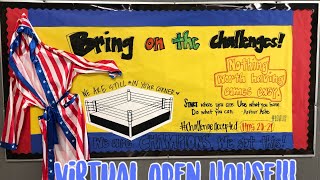 Bring on the challenges!
WE ARE STILL IN YOUR CORNER
Nothing
worth having
comes easy.
START where you are Use what you have
Do what you can Arthur Ashe
#challengeaccepted
VIRTUAL OPEN HOUSE!!!